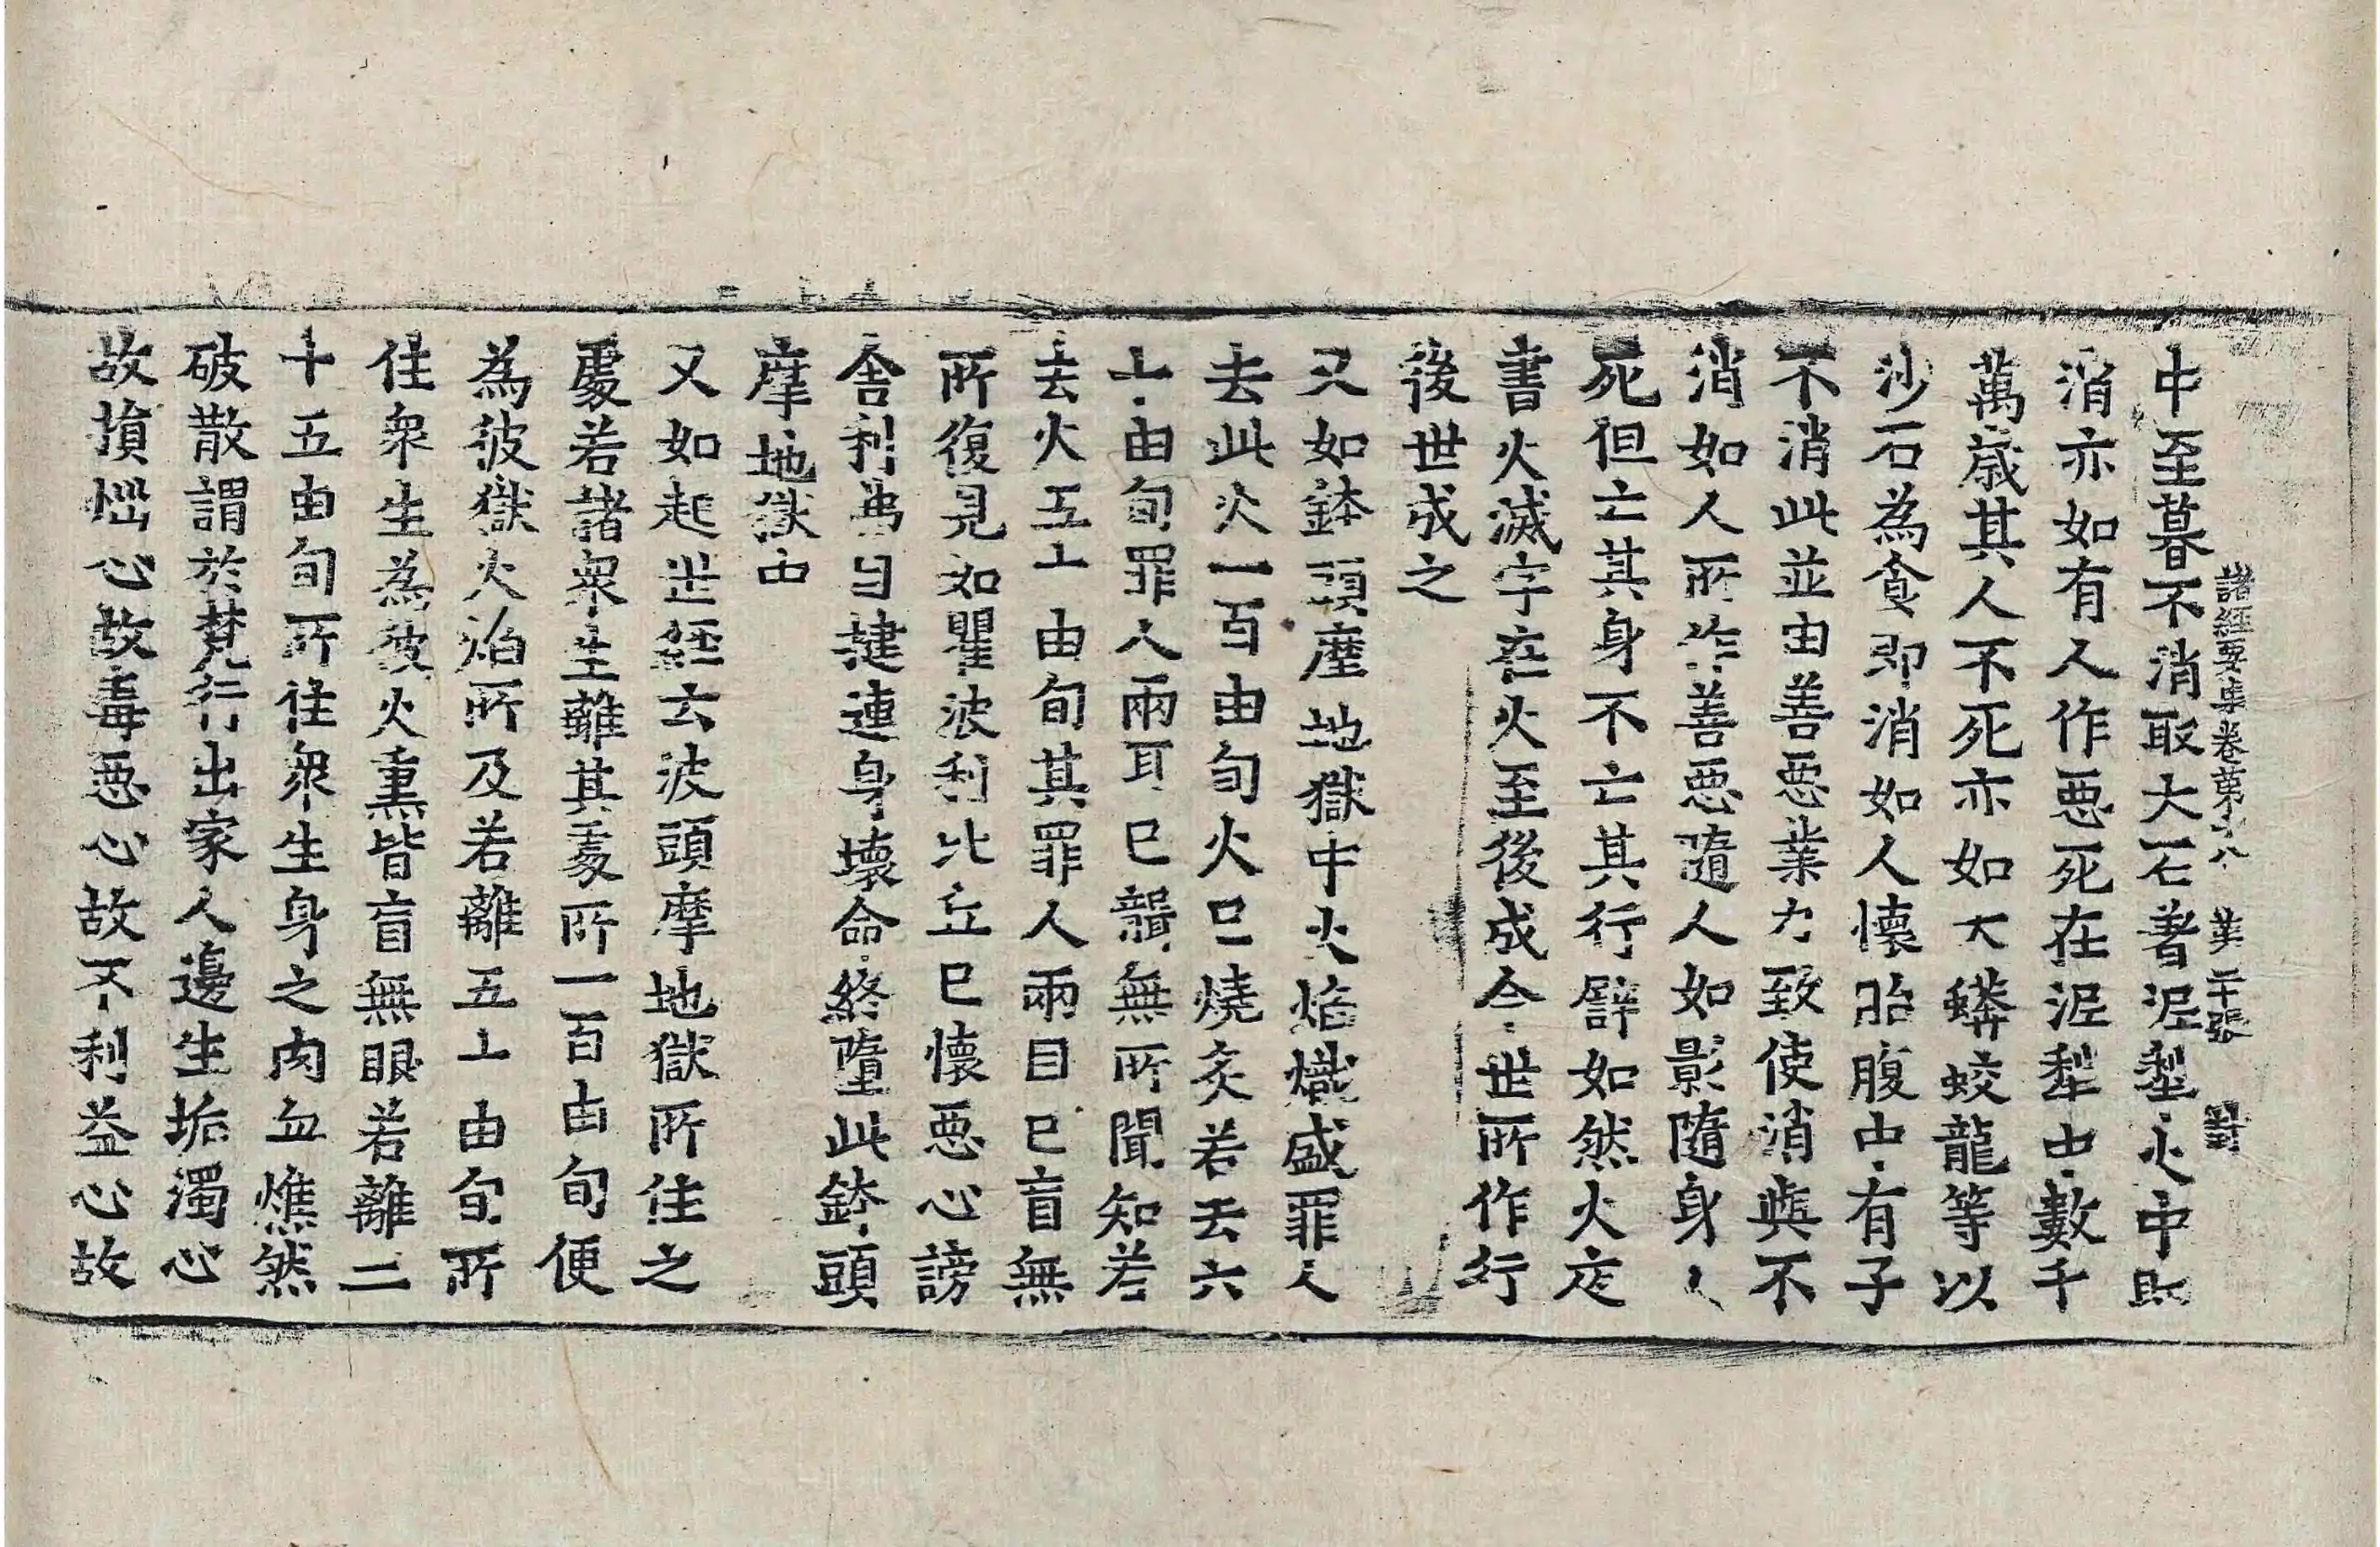 諸經要集卷第十八 業 二十張 對
中至暮不消取大石著泥犁火中即
消亦如有人作惡死在泥犁中數千
萬歲其人不死亦如大蟒蛟龍等以
沙石為食即消如人懷胎腹中有子
不消此並由善惡業力致使消與不
消如人所作善惡隨人如影隨身〻
死但亡其身不亡其行譬如然火夜
書火滅字在火至後成今世所作行
後世成之
又如鉢頭摩地獄中火焰熾盛罪人
去此火一百由旬火已燒炙若去六
十由旬罪人兩耳已聾無所聞知若
去火五十由旬其罪人兩目已盲無
所復見如瞿波利比丘已懷惡心謗
舍利弗目揵連身壞命終墮此鉢頭
摩地獄中
又如起世經云波頭摩地獄所住之
處若諸衆生離其處所一百由旬便
為彼獄火焰所及若離五十由旬所
住衆生為彼火熏皆盲無眼若離二
十五由旬所住衆生身之肉血燋然
破散謂於梵行出家人邊生垢濁心
故損惱心故毒惡心故不利益心故